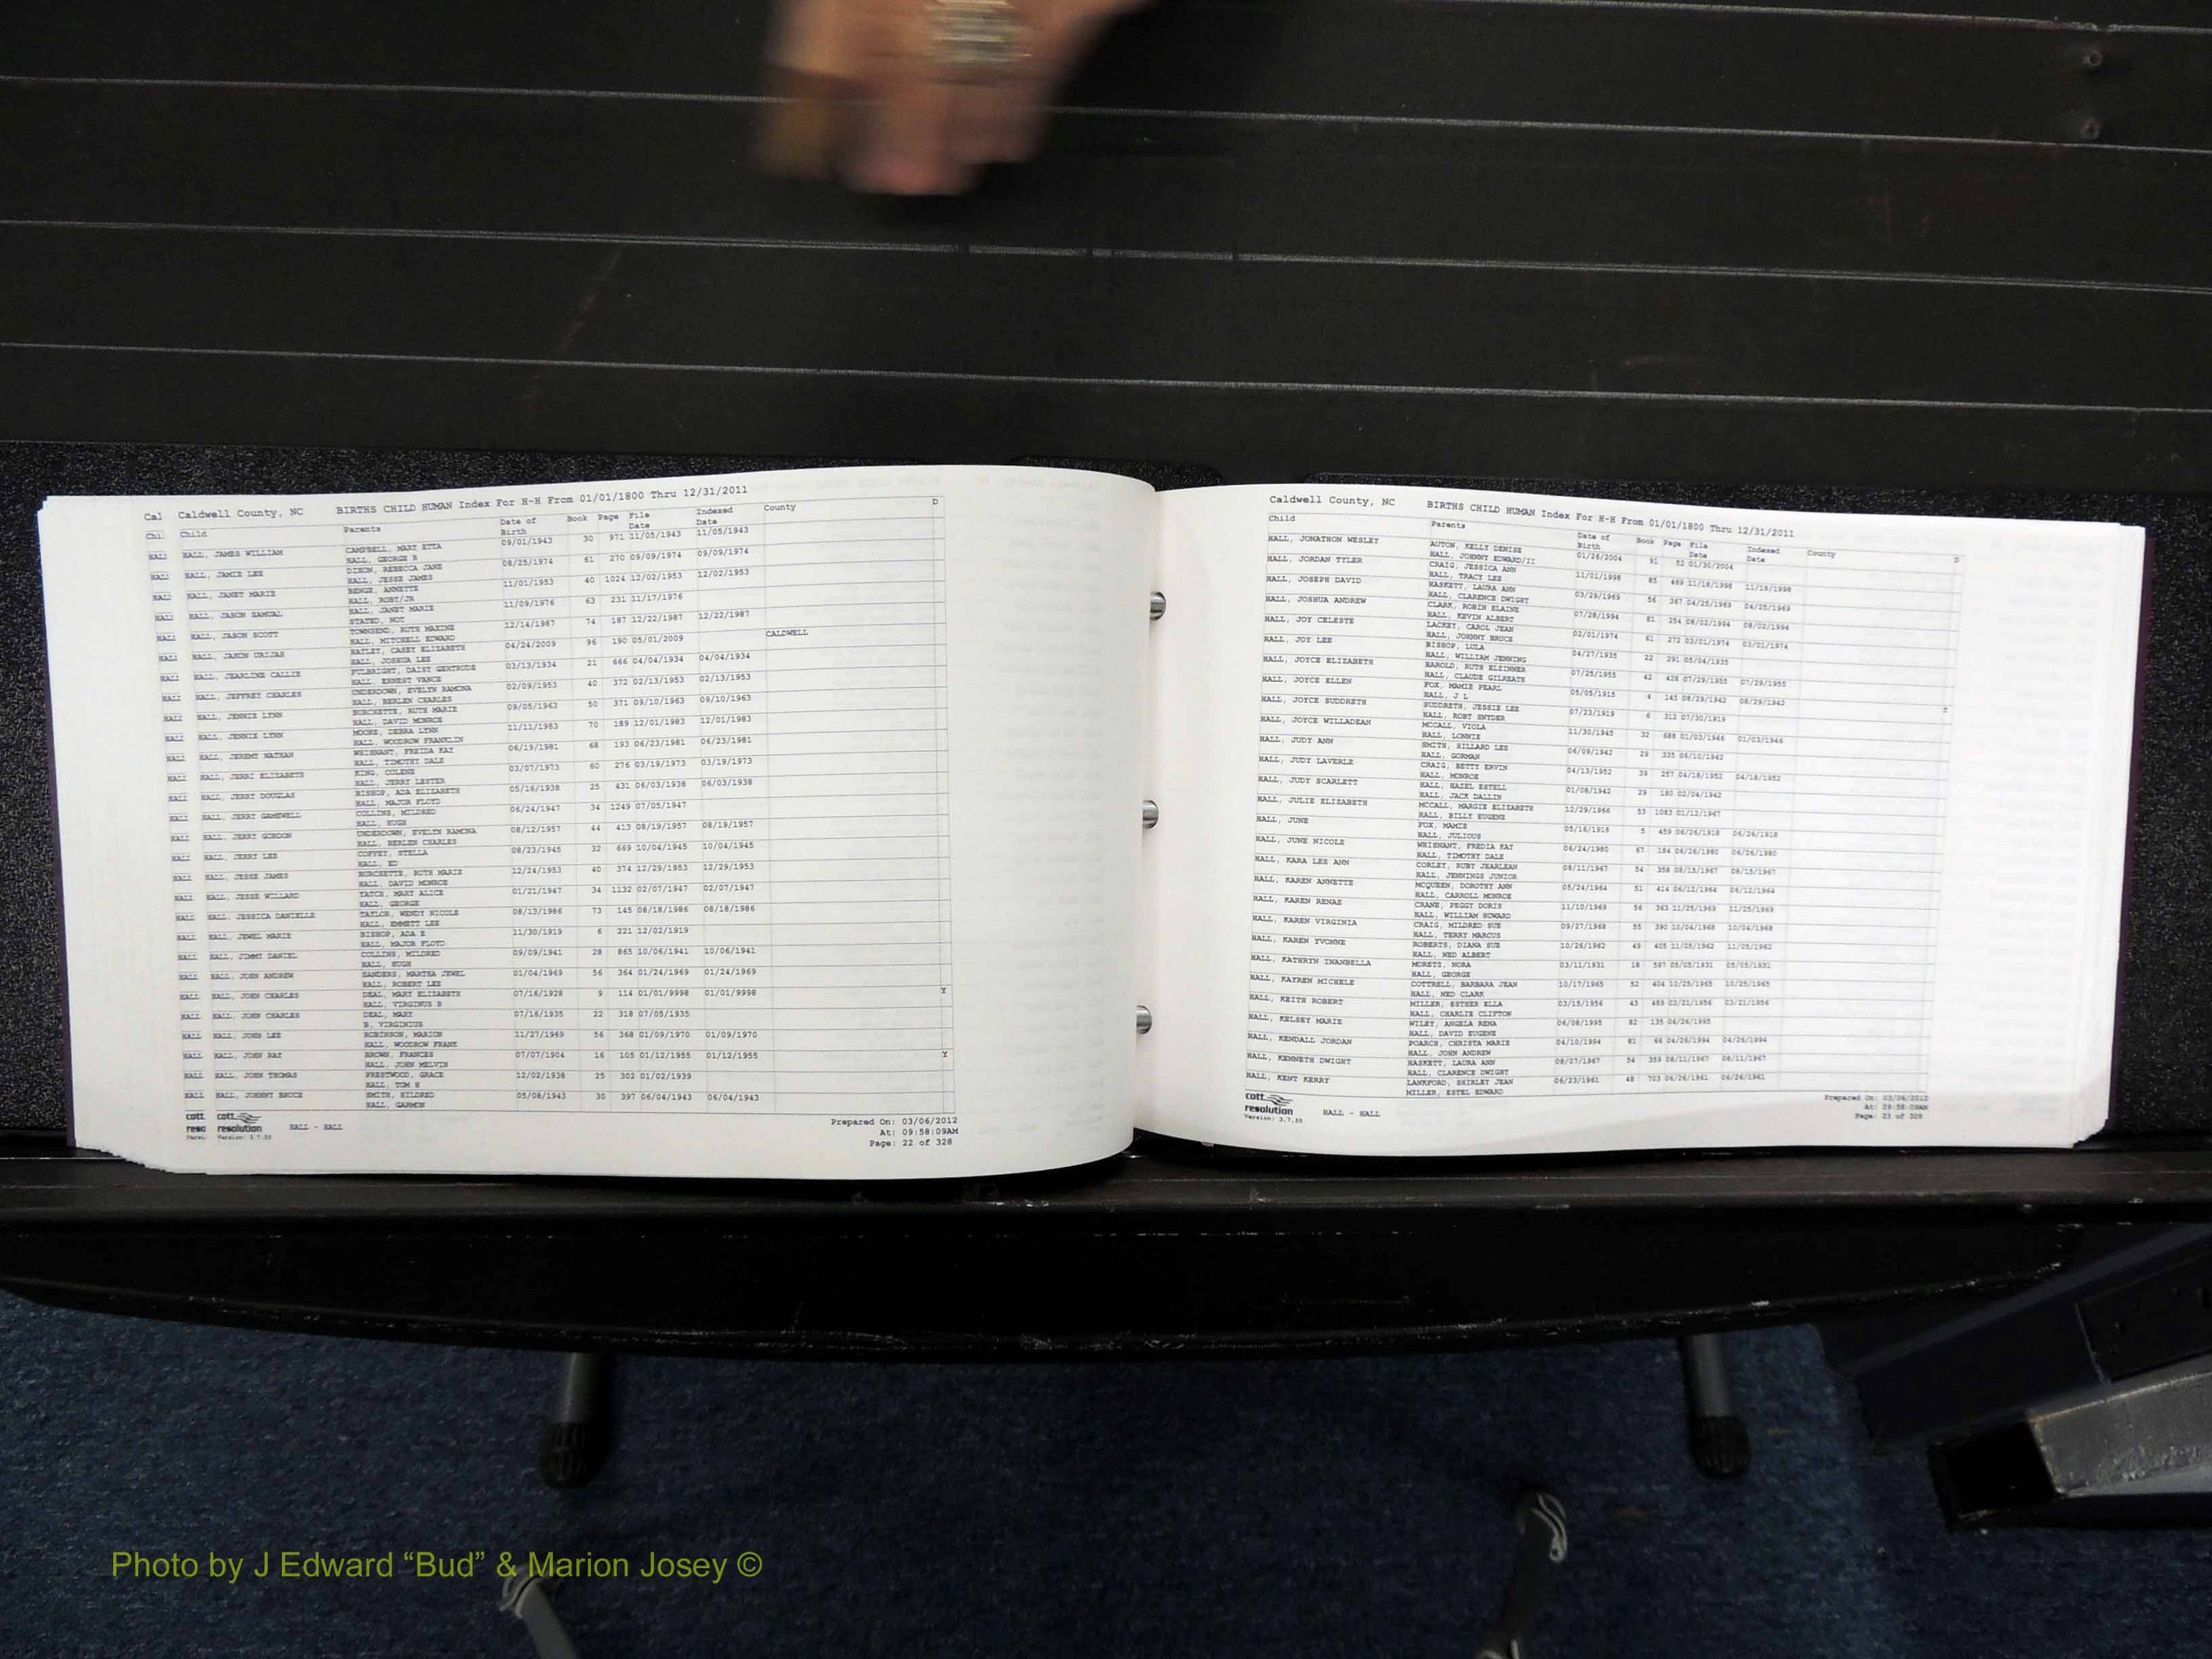 Cal Caldwell County, NC BIRTHS CHILD HUMAN Index For H-H From 01/01/1800 Thru 12/31/2011
Chi Child Parents Date of Birth Book Page File Date Indexed Date County D
HALL, JAMES WILLIAM CAMPBELL, MARY ETTA 09/01/1943 30 971 11/05/1943 11/05/1943
HALL, GEORGE R
HALL, JAMIE LEE DIXON, REBECCA JANE 08/25/1974 61 270 09/09/1974 09/09/1974
HALL, JESSE JAMES
HALL, JANET MARIE BENGE, ANNETTE 11/01/1953 40 1024 12/02/1953 12/02/1953
HALL, ROBY/JR
HALL, JASON SAMUAL HALL, JANET MARIE 11/09/1976 63 231 11/17/1976
STATED, NOT
HALL, JASON SCOTT TOWNSEND, RUTH MAXINE 12/14/1987 74 187 12/22/1987 12/22/1987
HALL, MITCHELL EDWARD
HALL, JAXON URIJAH HATLEY, CASEY ELIZABETH 04/24/2009 96 190 05/01/2009 CALDWELL
HALL, JOSHUA LEE
HALL, JEARLINE CALLIE FULBRIGHT, DAISY GERTRUDE 03/13/1934 21 666 04/04/1934 04/04/1934
HALL, ERNEST VANCE
HALL, JEFFREY CHARLES UNDERDOWN, EVELYN RAMONA 02/09/1953 40 372 02/13/1953 02/13/1953
HALL, BERLEN CHARLES
HALL, JENNIE LYNN BURCHETTE, RUTH MARIE 09/05/1963 50 371 09/10/1963 09/10/1963
HALL, DAVID MONROE
HALL, JENNIE LYNN MOORE, DEBRA LYNN 11/11/1983 70 189 12/01/1983 12/01/1983
HALL, WOODROW FRANKLIN
HALL, JEREMY NATHAN WHISNANT, FREIDA KAY 06/19/1981 68 193 06/23/1981 06/23/1981
HALL, TIMOTHY DALE
HALL, JERRI ELIZABETH KING, COLENE 03/07/1973 60 276 03/19/1973 03/19/1973
HALL, JERRY LESTER
HALL, JERRY DOUGLAS BISHOP, ADA ELIZABETH 05/16/1938 25 431 06/03/1938 06/03/1938
HALL, MAJOR FLOYD
HALL, JERRY GAMEWELL COLLINS, MILDRED 06/24/1947 34 1249 07/05/1947
HALL, HUGH
HALL, JERRY GORDON UNDERDOWN, EVELYN RAMONA 08/12/1957 44 413 08/19/1957 08/19/1957
HALL, BERLEN CHARLES
HALL, JERRY LEE COFFEY, STELLA 08/23/1945 32 669 10/04/1945 10/04/1945
HALL, ED
HALL, JESSE JAMES BURCHETTE, RUTH MARIE 12/24/1953 40 374 12/29/1953 12/29/1953
HALL, DAVID MONROE
HALL, JESSE WILLARD YATCH, MARY ALICE 01/21/1947 34 1132 02/07/1947 02/07/1947
HALL, GEORGE
HALL, JESSICA DANIELLE TAYLOR, WENDY NICOLE 08/13/1986 73 145 08/18/1986 08/18/1986
HALL, EMMETT LEE
HALL, JEWEL MARIE BISHOP, ADA E 11/30/1919 6 221 12/02/1919
HALL, MAJOR FLOYD
HALL, JIMMY DANIEL COLLINS, MILDRED 09/09/1941 28 865 10/06/1941 10/06/1941
HALL, HUGH
HALL, JOHN ANDREW SANDERS, MARTHA JEWEL 01/04/1969 56 364 01/24/1969 01/24/1969
HALL, ROBERT LEE
HALL, JOHN CHARLES DEAL, MARY ELIZABETH 07/16/1928 9 114 01/01/9998 01/01/9998 Y
HALL, VIRGINUS B
HALL, JOHN CHARLES DEAL, MARY 07/16/1935 22 318 07/05/1935
B, VIRGINIUS
HALL, JOHN LEE ROBINSON, MARION 11/27/1969 56 368 01/09/1970 01/09/1970
HALL, WOODROW FRANK
HALL, JOHN RAY BROWN, FRANCES 07/07/1904 16 105 01/12/1955 01/12/1955 Y
HALL, JOHN MELVIN
HALL, JOHN THOMAS PRESTWOOD, GRACE 12/02/1938 25 302 01/02/1939
HALL, TOM H
HALL, JOHNNY BRUCE SMITH, HILDRED 05/08/1943 30 397 06/04/1943 06/04/1943
HALL, GARMON
cott resolution HALL - HALL
Version: 3.7.55
Prepared On: 03/06/2012
At: 09:58:09AM
Page: 22 of 328
Caldwell County, NC BIRTHS CHILD HUMAN Index For H-H From 01/01/1800 Thru 12/31/2011
Child Parents Date of Birth Book Page File Date Indexed Date County D
HALL, JONATHON WESLEY AUTON, KELLY DENISE 01/26/2004 91 52 01/30/2004
HALL, JOHNNY EDWARD/II
HALL, JORDAN TYLER CRAIG, JESSICA ANN 11/01/1998 85 469 11/18/1998 11/18/1998
HALL, TRACY LEE
HALL, JOSEPH DAVID HASKETT, LAURA ANN 03/29/1969 56 367 04/25/1969 04/25/1969
HALL, CLARENCE DWIGHT
HALL, JOSHUA ANDREW CLARK, ROBIN ELAINE 07/28/1994 81 254 08/02/1994 08/02/1994
HALL, KEVIN ALBERT
HALL, JOY CELESTE LACKEY, CAROL JEAN 02/01/1974 61 272 03/01/1974 03/01/1974
HALL, JOHNNY BRUCE
HALL, JOY LEE BISHOP, LULA 04/27/1935 22 291 05/04/1935
HALL, WILLIAM JENNING
HALL, JOYCE ELIZABETH HAROLD, RUTH ELZINNER 07/25/1955 42 426 07/29/1955 07/29/1955
HALL, CLAUDE GILREATH
HALL, JOYCE ELLEN FOX, MAMIE PEARL 05/05/1915 4 145 08/29/1942 08/29/1942
HALL, J L
HALL, JOYCE SUDDRETH SUDDRETH, JESSIE LEE 07/23/1919 6 312 07/30/1919
HALL, ROBT SNYDER
HALL, JOYCE WILLADEAN MCCALL, VIOLA 11/30/1945 32 688 01/03/1946 01/03/1946
HALL, LONNIE
HALL, JUDY ANN SMITH, HILLARD LEE 06/09/1942 29 335 06/10/1942
HALL, GORMAN
HALL, JUDY LAVERLE CRAIG, BETTY ERVIN 04/13/1952 39 257 04/18/1952 04/18/1952
HALL, MONROE
HALL, JUDY SCARLETT HALL, HAZEL ESTELL 01/08/1942 29 180 02/04/1942
HALL, JACK DALLIN
HALL, JULIE ELIZABETH MCCALL, MARGIE ELIZABETH 12/29/1966 53 1083 01/12/1967
HALL, BILLY EUGENE
HALL, JUNE FOX, MAMIE 05/16/1918 5 459 06/26/1918 06/26/1918
HALL, JULIOUS
HALL, JUNE NICOLE WHISNANT, FREDIA KAY 06/24/1980 67 184 06/26/1980 06/26/1980
HALL, TIMOTHY DALE
HALL, KARA LEE ANN CORLEY, RUBY JEARLEAN 08/11/1967 54 358 08/15/1967 08/15/1967
HALL, JENNINGS JUNIOR
HALL, KAREN ANNETTE MCQUEEN, DOROTHY ANN 05/24/1964 51 414 06/12/1964 06/12/1964
HALL, CARROLL MONROE
HALL, KAREN RENAE CRANE, PEGGY DORIS 11/10/1969 56 363 11/25/1969 11/25/1969
HALL, WILLIAM HOWARD
HALL, KAREN VIRGINIA CRAIG, MILDRED SUE 09/27/1968 55 390 10/04/1968 10/04/1968
HALL, TERRY MARCUS
HALL, KAREN YVONNE ROBERTS, DIANA SUE 10/26/1962 49 405 11/05/1962 11/05/1962
HALL, NED ALBERT
HALL, KATHRYN INANBELLA MORETZ, NORA 03/11/1931 18 597 05/05/1931 05/05/1931
HALL, GEORGE
HALL, KAYREN MICHELE COTTRELL, BARBARA JEAN 10/17/1965 52 404 10/25/1965 10/25/1965
HALL, NED CLARK
HALL, KEITH ROBERT MILLER, ESTHER ELLA 03/15/1956 43 489 03/21/1956 03/21/1956
HALL, CHARLIE CLIFTON
HALL, KELSEY MARIE WILEY, ANGELA RENA 06/08/1995 82 135 06/26/1995
HALL, DAVID EUGENE
HALL, KENDALL JORDAN POARCH, CHRISTA MARIE 04/10/1994 81 66 04/26/1994 04/26/1994
HALL, JOHN ANDREW
HALL, KENNETH DWIGHT HASKETT, LAURA ANN 08/07/1967 54 353 08/11/1967 08/11/1967
HALL, CLARENCE DWIGHT
HALL, KENT KERRY LANKFORD, SHIRLEY JEAN 06/23/1961 48 703 06/26/1961 06/26/1961
MILLER, ESTEL EDWARD
cott resolution HALL - HALL
Version: 3.7.55
Prepared On: 03/06/2012
At: 09:58:09AM
Page: 23 of 328
Photo by J Edward “Bud” & Marion Josey ©